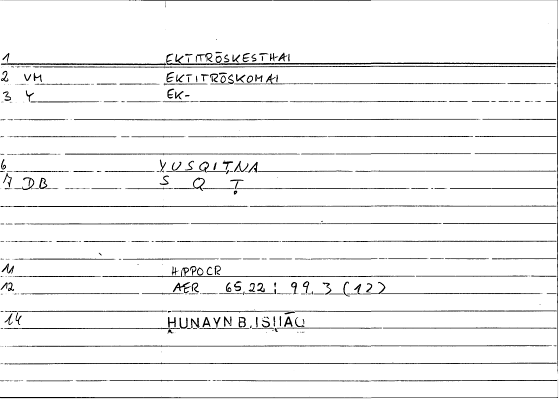 1 EKTITRŌSKESTHAI
2 VM EKTITRŌSKOMAI
3 Y EK-
6 YUSQIṬNA
7 DB S Q Ṭ
11 HIPPOCR
12 AER 65,22 : 99,3 (12)
14 ḤUNAYN B. ISḤĀQ